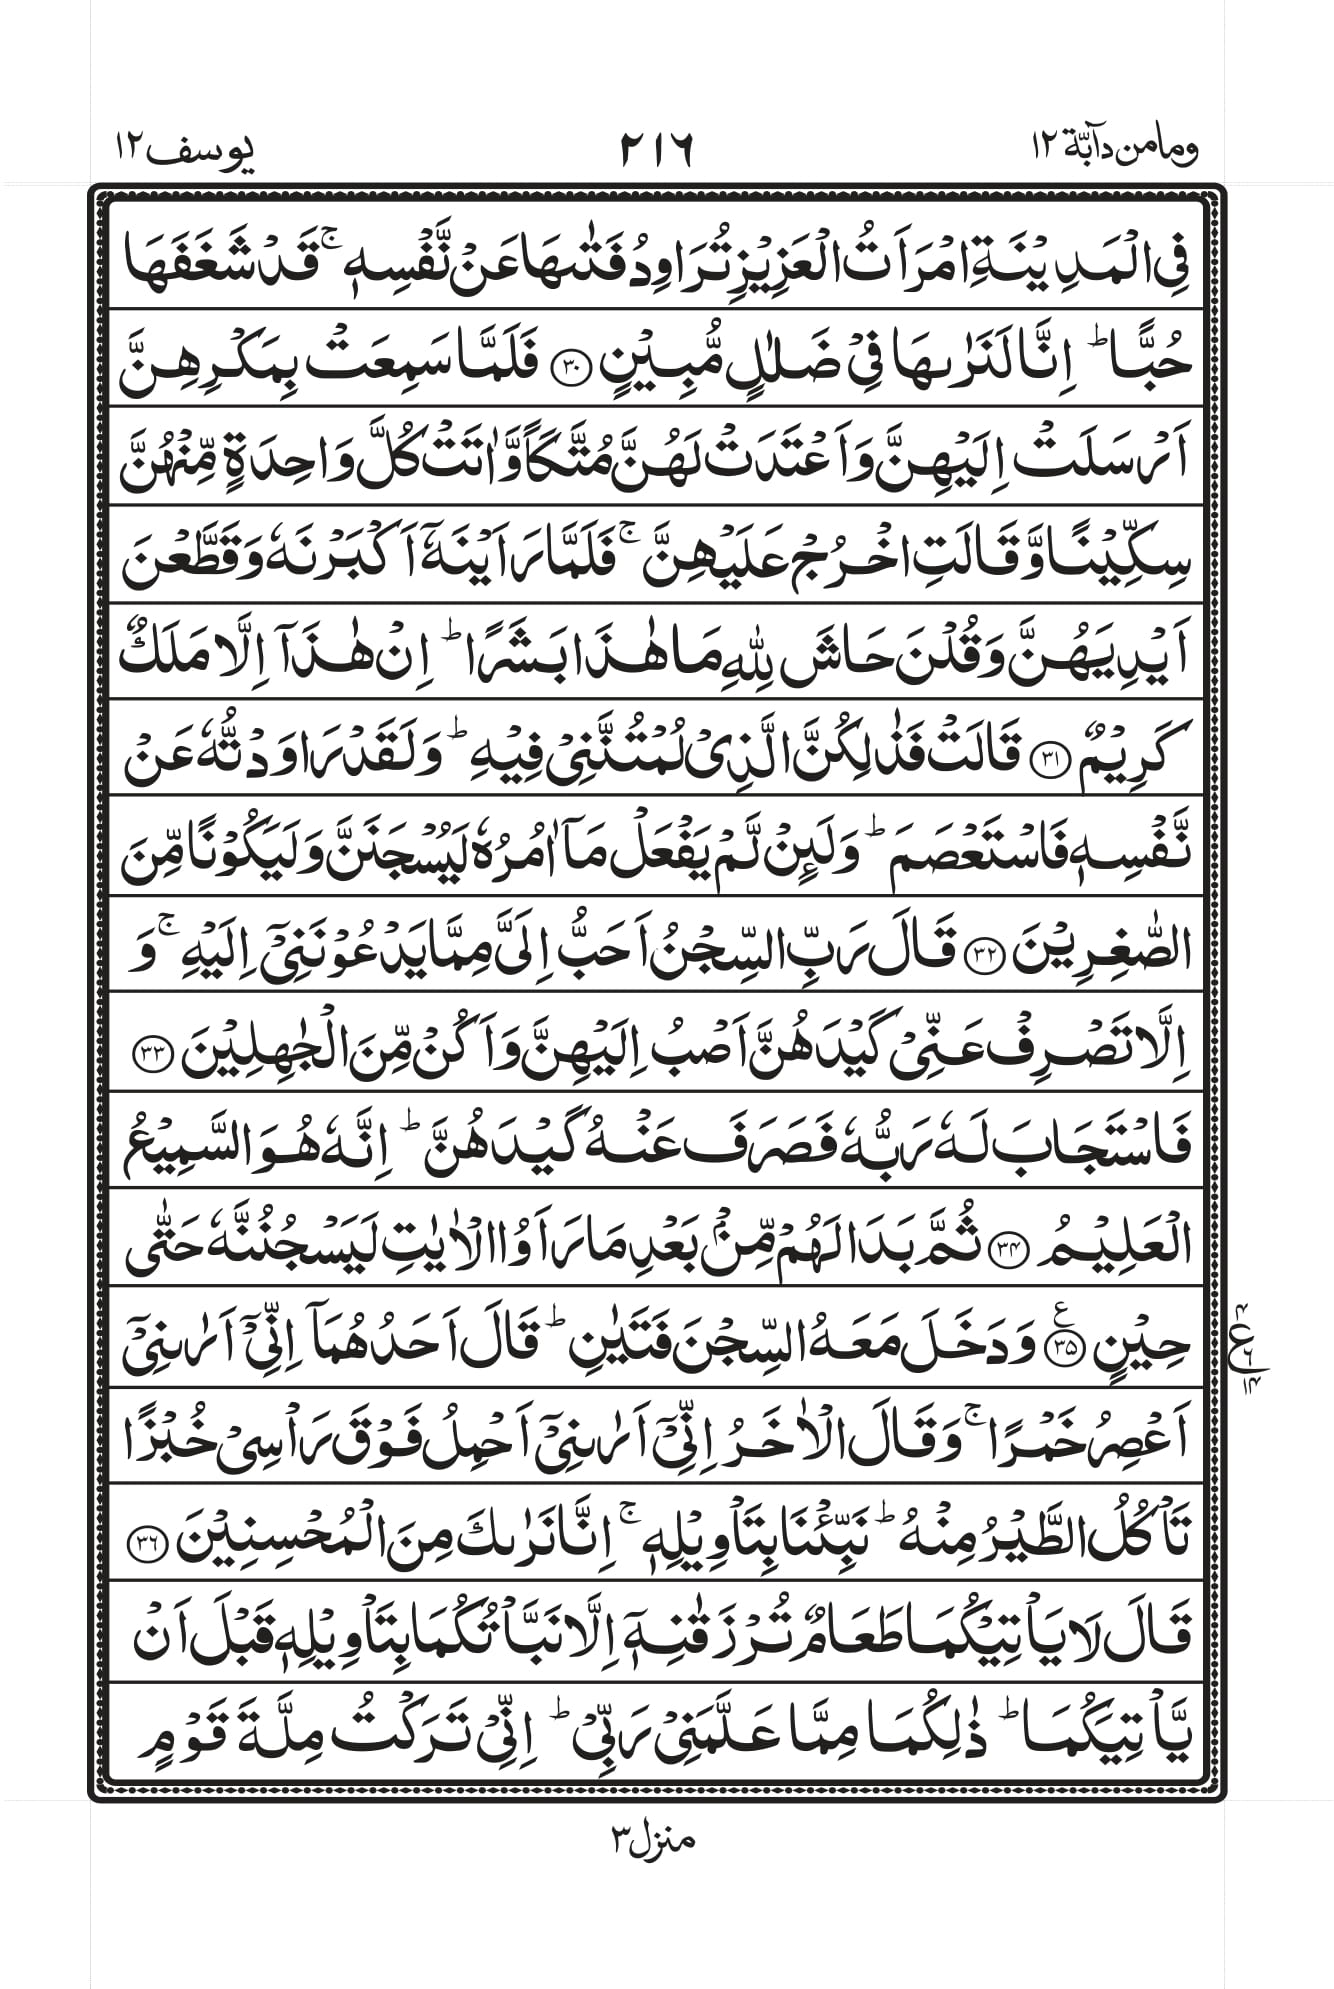 ومامن دآبّة ١٢
٢١٦
يوسف ١٢
فِي الْمَدِيْنَةِ امْرَاَتُ الْعَزِيْزِ تُرَاوِدُ فَتٰىهَا عَنْ نَّفْسِهٖ ۚ قَدْ شَغَفَهَا
حُبًّا ؕ اِنَّا لَنَرٰىهَا فِيْ ضَلٰلٍ مُّبِيْنٍ ﴿۳۰﴾ فَلَمَّا سَمِعَتْ بِمَكْرِهِنَّ
اَرْسَلَتْ اِلَيْهِنَّ وَاَعْتَدَتْ لَهُنَّ مُتَّكَاً وَّاٰتَتْ كُلَّ وَاحِدَةٍ مِّنْهُنَّ
سِكِّيْنًا وَّقَالَتِ اخْرُجْ عَلَيْهِنَّ ۚ فَلَمَّا رَاَيْنَهٗۤ اَكْبَرْنَهٗ وَقَطَّعْنَ
اَيْدِيَهُنَّ وَقُلْنَ حَاشَ لِلّٰهِ مَا هٰذَا بَشَرًا ؕ اِنْ هٰذَاۤ اِلَّا مَلَكٌ
كَرِيْمٌ ﴿۳۱﴾ قَالَتْ فَذٰلِكُنَّ الَّذِيْ لُمْتُنَّنِيْ فِيْهِ ؕ وَلَقَدْ رَاوَدْتُّهٗ عَنْ
نَّفْسِهٖ فَاسْتَعْصَمَ ؕ وَلَئِنْ لَّمْ يَفْعَلْ مَاۤ اٰمُرُهٗ لَيُسْجَنَنَّ وَلَيَكُوْنًا مِّنَ
الصّٰغِرِيْنَ ﴿۳۲﴾ قَالَ رَبِّ السِّجْنُ اَحَبُّ اِلَيَّ مِمَّا يَدْعُوْنَنِيْۤ اِلَيْهِ ۚ وَ
اِلَّا تَصْرِفْ عَنِّيْ كَيْدَهُنَّ اَصْبُ اِلَيْهِنَّ وَاَكُنْ مِّنَ الْجٰهِلِيْنَ ﴿۳۳﴾
فَاسْتَجَابَ لَهٗ رَبُّهٗ فَصَرَفَ عَنْهُ كَيْدَهُنَّ ؕ اِنَّهٗ هُوَ السَّمِيْعُ
الْعَلِيْمُ ﴿۳۴﴾ ثُمَّ بَدَا لَهُمْ مِّنْۢ بَعْدِ مَا رَاَوُا الْاٰيٰتِ لَيَسْجُنُنَّهٗ حَتّٰى
حِيْنٍ ﴿۳۵﴾ ع وَدَخَلَ مَعَهُ السِّجْنَ فَتَيٰنِ ؕ قَالَ اَحَدُهُمَاۤ اِنِّيْۤ اَرٰىنِيْۤ
ع ۴ ٦ ۱۴
اَعْصِرُ خَمْرًا ۚ وَقَالَ الْاٰخَرُ اِنِّيْۤ اَرٰىنِيْۤ اَحْمِلُ فَوْقَ رَاْسِيْ خُبْزًا
تَاْكُلُ الطَّيْرُ مِنْهُ ؕ نَبِّئْنَا بِتَاْوِيْلِهٖ ۚ اِنَّا نَرٰىكَ مِنَ الْمُحْسِنِيْنَ ﴿۳٦﴾
قَالَ لَا يَاْتِيْكُمَا طَعَامٌ تُرْزَقٰنِهٖۤ اِلَّا نَبَّاْتُكُمَا بِتَاْوِيْلِهٖ قَبْلَ اَنْ
يَّاْتِيَكُمَا ؕ ذٰلِكُمَا مِمَّا عَلَّمَنِيْ رَبِّيْ ؕ اِنِّيْ تَرَكْتُ مِلَّةَ قَوْمٍ
منزل ٣